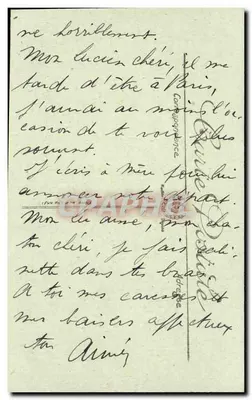 ne horriblement.
Mon Lucien chéri, il me
tarde d'être à Paris,
j'aurai au moins l'oc-
casion de te voir plus
souvent.
J'écris à Mère pour lui
annoncer notre départ.
Mon aimé, mon cha-
ton chéri, je fais
dans tes bras
A toi mes caresses et
mes baisers affectueux
ton Aimée
Correspondance
Adresse
CPAPHIL